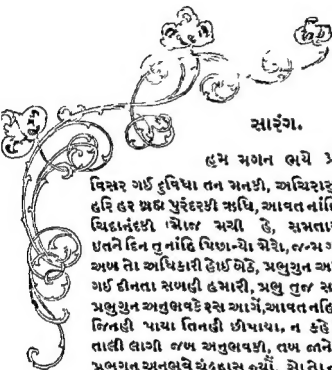 સારંગ.
હમ મગન ભયે પ્ર
વિસર ગઈ દુવિધા તન મનકી, અચિરાસુ
હરિ હર બ્રહ્મ પુરંદરકી ઋધિ, આવત નાંહિ
ચિદાનંદકી મોજ મચી હે, સમતાર
ઇતને દિન તુ નાંહિ પિછાન્યો મેરો, જન્મ ગ
અબ તો અધિકારી હોઈ બેઠે, પ્રભુગુન અ
ગઈ દીનતા સબહી હમારી, પ્રભુ તુજ સ
પ્રભુગુન અનુભવકે રસ આગેં, આવત નહિ
જિનહી પાયા તિનહી છીપાયા, ન કહે
તાલી લાગી જબ અનુભવકી, તબ જાને
પ્રભુગુન અનુભવ ચંદ્રહાસ જ્યોં, સો તો